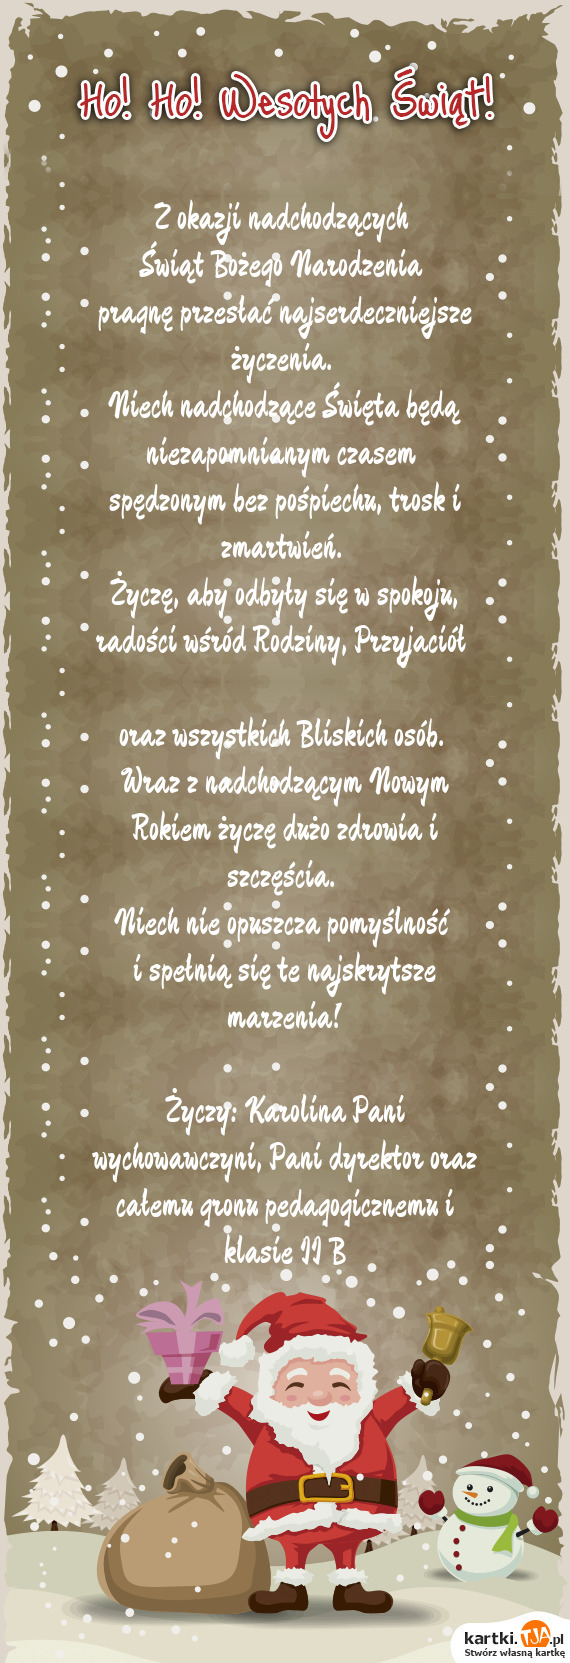 Ho! Ho! Wesołych Świąt!
Z okazji nadchodzących
Świąt Bożego Narodzenia
pragnę przesłać najserdeczniejsze
życzenia.
Niech nadchodzące Święta będą
niezapomnianym czasem
spędzonym bez pośpiechu, trosk i
zmartwień.
Życzę, aby odbyły się w spokoju,
radości wśród Rodziny, Przyjaciół
oraz wszystkich Bliskich osób.
Wraz z nadchodzącym Nowym
Rokiem życzę dużo zdrowia i
szczęścia.
Niech nie opuszcza pomyślność
i spełnią się te najskrytsze
marzenia!
Życzy: Karolina Pani
wychowawczyni, Pani dyrektor oraz
całemu gronu pedagogicznemu i
klasie II B
kartki.TJA.pl
Stwórz własną kartkę